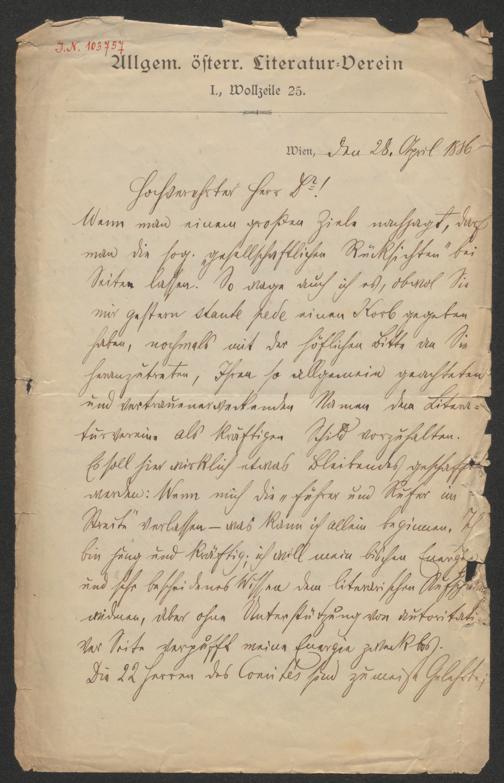 J.N. 103757
Allgem. österr. Literatur-Verein
I., Wollzeile 25.
Wien, den 28. April 1886
Hochverehrter Herr Dr!
Wenn man einem großen Ziele nachjagt, darf
man die sog. „gesellschaftlichen Rücksichten" bei
Seiten lassen. So wage auch ich es, obwol Sie
mir gestern stante pede einen Korb gegeben
haben, nochmals mit der höflichen Bitte an Sie
heranzutreten, Ihren so allgemein geachteten
und vertrauenerweckenden Namen dem Litera-
turvereine als kräftigen Schild vorzuhalten.
Es soll hier wirklich etwas Bleibendes geschaffen
werden: Wenn mich die „Führer und Rufer im
Streite" verlassen – was kann ich allein beginnen. Ich
bin jung und kräftig; ich will mein bischen Energie
und sehr bescheidenes Wissen dem literarischen
widmen, aber ohne Unterstützung von autoritati-
ver Seite verpufft meine Energie zwecklos.
Die 22 Herren des Comités sind zumeist Gelehrte;